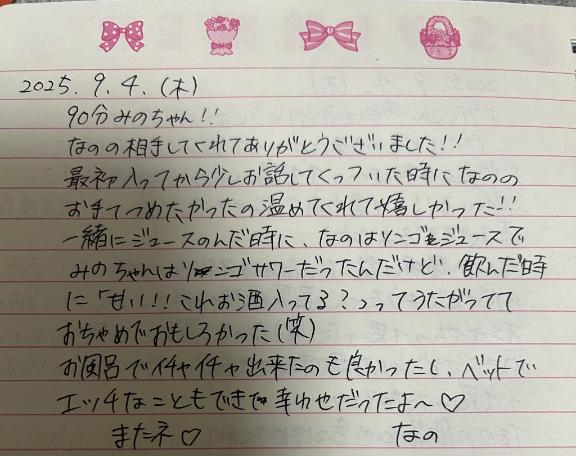 2025. 9. 4. (木)
90分みのちゃん!!
なのの相手してくれてありがとうございました!!
最初入ってから少しお話してくっついた時になのの
お手てつめたかったの温めてくれて嬉しかった!!
一緒にジュースのんだ時に、なのはリンゴジュースで
みのちゃんはリンゴサワーだったんだけど、飲んだ時
に「甘い!!これお酒入ってる?」ってうたがってて
おちゃめでおもしろかった(笑)
お風呂でイチャイチャ出来たのも良かったし、ベットで
エッチなこともできて幸わせだったよ〜♡
またネ♡ なの